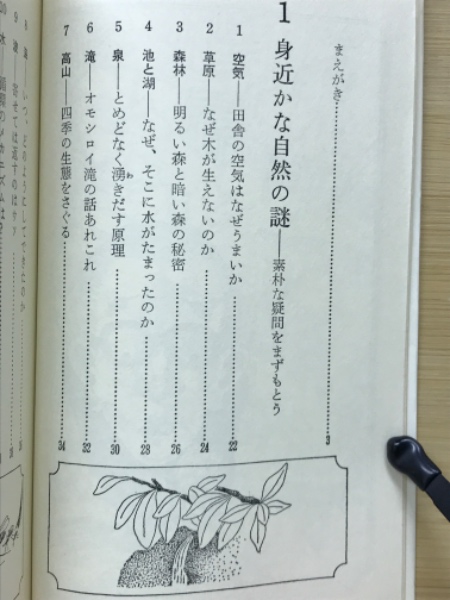 まえがき……………3
1 身近かな自然の謎——素朴な疑問をまずもとう
1 空気——田舎の空気はなぜうまいか……………22
2 草原——なぜ木が生えないのか……………24
3 森林——明るい森と暗い森の秘密……………26
4 池と湖——なぜ、そこに水がたまったのか……………28
5 泉——とめどなく湧きだす原理……………30
6 滝——オモシロイ滝の話あれこれ……………32
7 高山——四季の生態をさぐる……………34
8 いつ、どのようにしてできたのか
9 寄せては返すのはナゼ